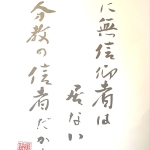 に無信仰者は
居ない
分教の信者だか